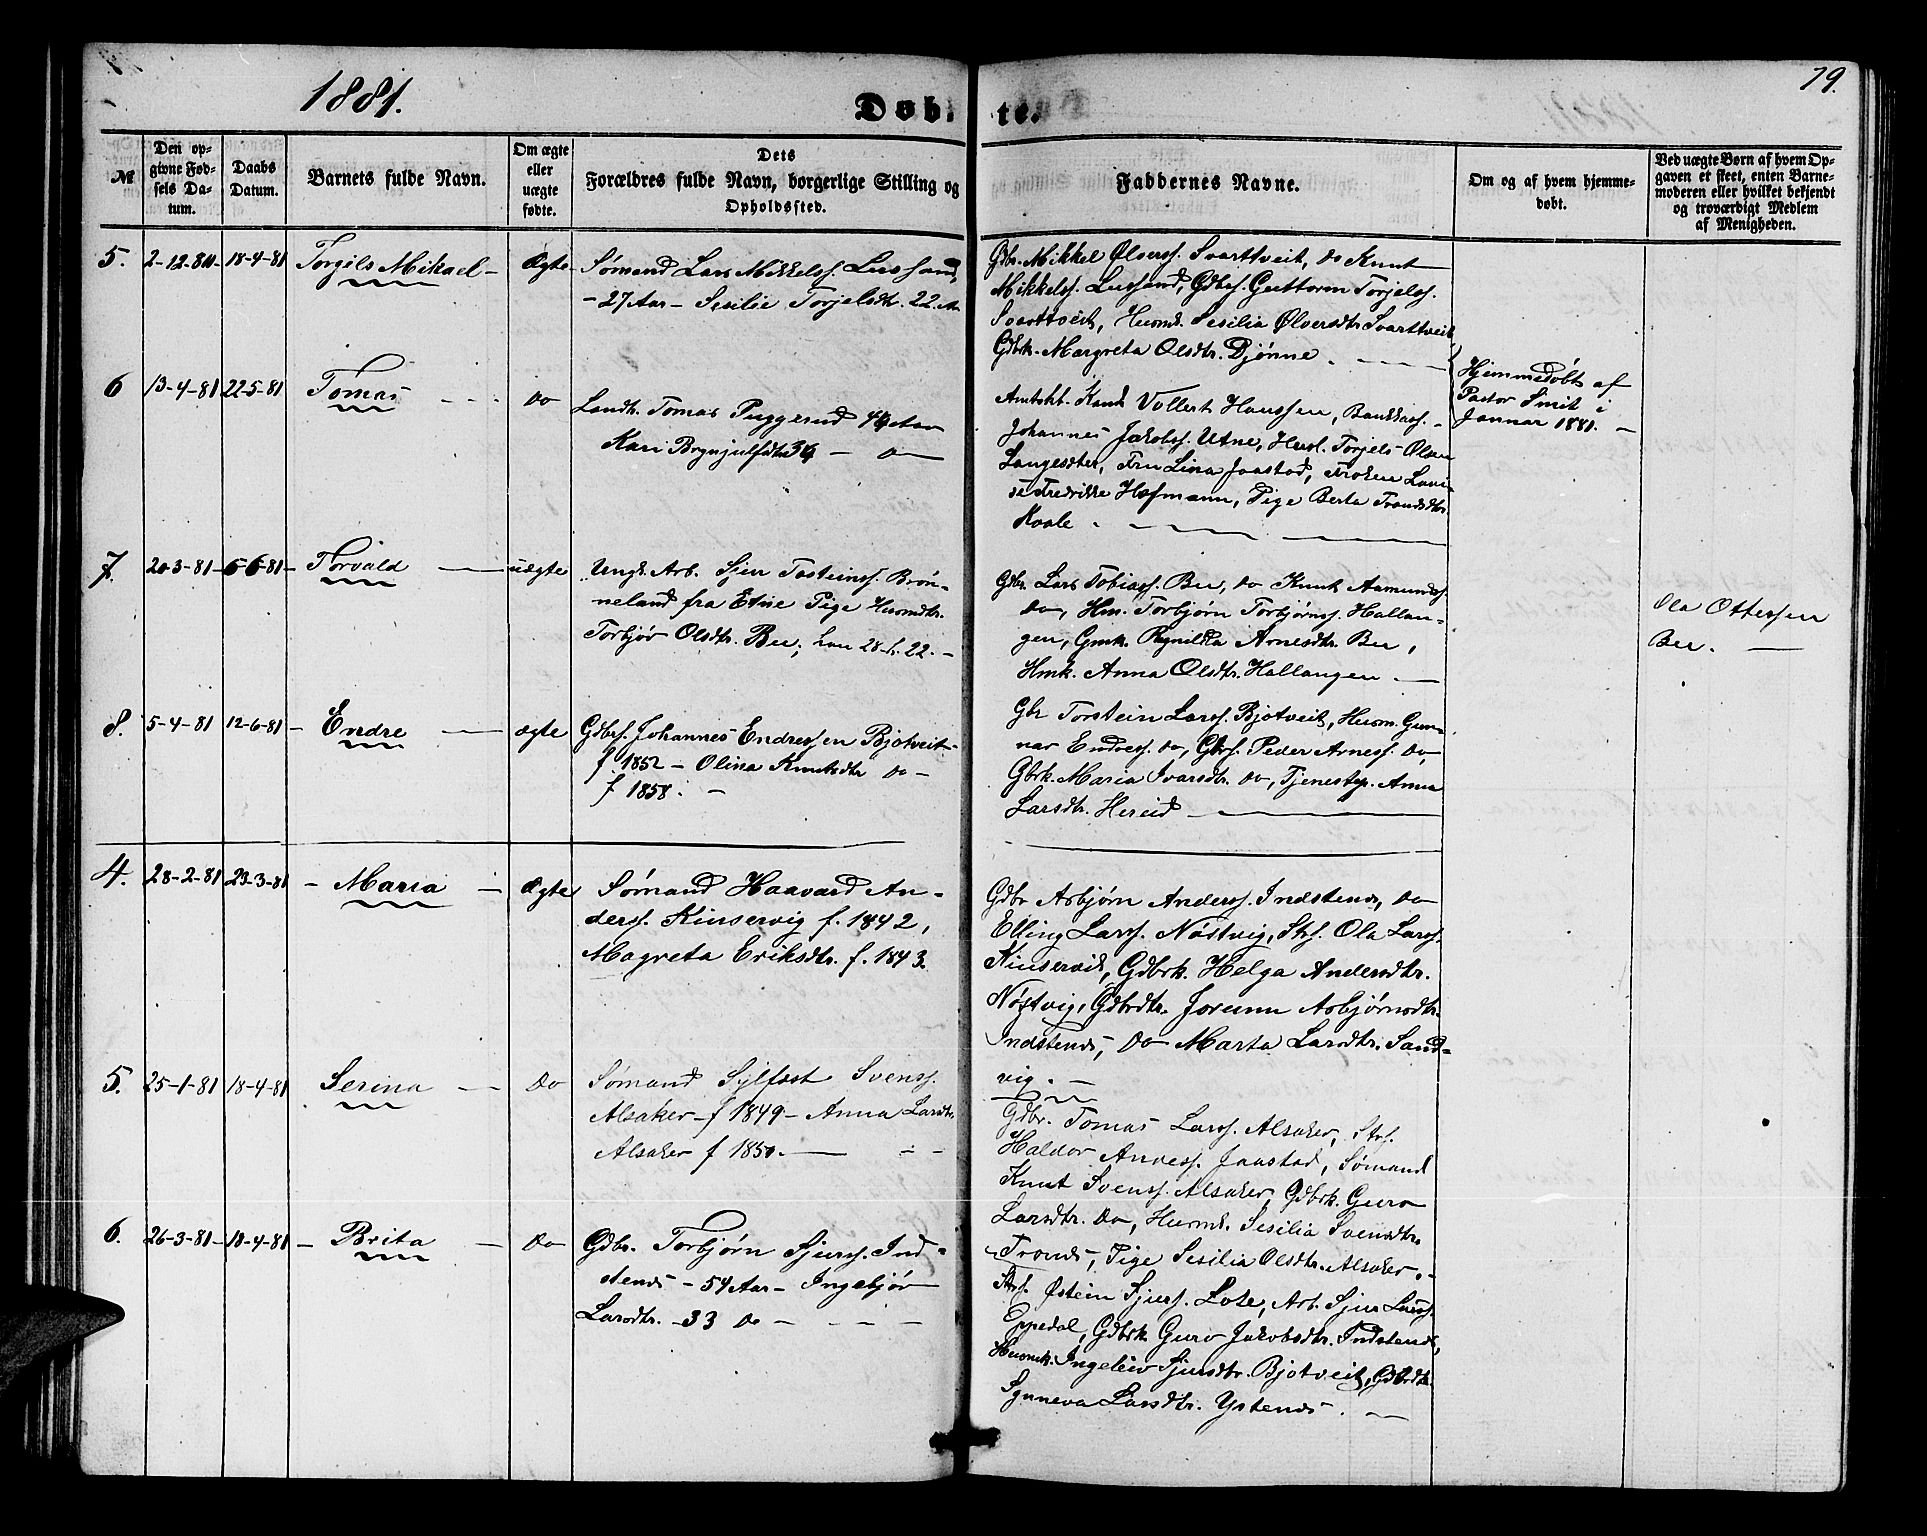 1881.
Døbte.
79.
№
Den opgivne Fødsels Datum.
Daabs Datum.
Barnets fulde Navn.
Om ægte eller uægte fødte.
Dets Forældres fulde Navn, borgerlige Stilling og Opholdssted.
Faddernes Navne.
Om og af hvem hjemmedøbt.
Ved uægte Børn af hvem Opgaven et skeet, enten Barnemoderen eller hvilket bekjendt og troværdigt Medlem af Menigheden.
5. 2-12-80- 18-4-81 Torgils Mikael- Ægte
Sømand Lars Mikkelss. Lussand,
- 27 Aar - Sesilie Torjelsdtr. 22 Aa
Gbr. Mikkel Ølverss. Svarttveit, do Knut
Mikkelss. Lussand, Gdbrs. Guttorm Torjelss.
Svarttveit, Husmk. Sesilia Ølversdtr Svarttveit
Gdbrk. Margreta Olsdtr. Djønne. -
Hjemmedøbt af
Pastor Smit i
Januar 1881. -
6 13-4-81 22-5-81 Tomas - - - do
Landh. Tomas Puggerud 44 Aar
Kari Brynjulfsdtr 34 - do
Amtskt. Kand Vollert Hanssen, Bankkass. -
Johannes Jakobss. Utne, Handl. Torjels Olsen
Langesæter, Fru Lina Jaastad, Frøken Lovi-
se Fredrikke Hofmann, Pige Berta Trondsdtr.
Kvale. -
7. 20-3-81- 5-6-81- Torvald - uægte
Ungk. Arb. Sjur Tosteinss. Brøn-
neland fra Etne Pige Husmdtr.
Torbjør Olsdtr. Bu; han 28 h. 22. -
Gbr. Lars Tobiass. Bu, do Knut Aamundss.
do, Hm. Torbjørn Torbjørnss. Hallan-
gen, Gmk. Ragnilda Arnesdtr. Bu,
Hmk. Anna Olsdtr. Hallangen. -
Ola Ottessen
Bu. -
8. 5-4-81 12-6-81 - Endre - ægte
Gdbrs. Johannes Endressen Bjotveit-
f 1852 - Olina Knutsdtr do -
f 1858. -
Gbr Torstein Larss. Bjotveit, Husm. Gun-
nar Endress. do, Gbrs. Peder Arness. do,
Gbrk. Maria Ivarsdtr. do, Tjenestep. Anna
Larsdtr. Hereid -
4. 28-2-81 23-3-81 - Maria - Ægte
Sømand Haavard An-
derss. Kinservig f. 1842,
Magreta Eriksdtr. f. 1843.
Gdbr Asbjørn Anderss. Indstenes, do
Elling Larss. Nøstvig, Strs. Ola Larss.
Kinservik, Gdbrk. Helga Andersdtr.
Nøstvig, Gdbrdtr. Jorunn Asbjørnsdtr.
Indstenes, do Marta Larsdtr. Sand-
vig. -
5. 25-1-81 18-4-81 Serina - do
Sømand Sylfest Svenss.
Alsaker - f 1849 - Anna Larsdtr.
Alsaker f 1850. -
Gdbr. Tomas Larss. Alsaker, Strs.
Haldor Andress. Jaastad, Sømand
Knut Svenss. Alsaker, Gdbrk. Guro
Larsdtr. do, Husmk. Sesilia Svensdtr.
Tronds, Pige Sesilia Olsdtr. Alsaker. -
6. 26-3-81 - 18-4-81 - Brita - do
Gdbr. Torbjørn Sjurss. Ind-
stenes - 54 Aar - Ingebjør
Larsdtr. - 33 do - - -
Strs. Østein Sjurss. Lote, Arb. Sjur Larss.
Eppedal, Gdbrk Guro Jakobsdtr. Indstenes,
Husmk. Ingeleiv Sjursdtr. Bjotveit, Gdbrdtr.
Synneva Larsdtr. Ystenes. -